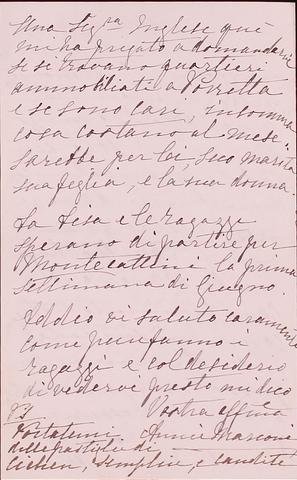 Una Sig.ra Inglese qui
mi ha pregato a domandarvi
se si trovano quartieri
ammobiliati a Porretta
e se sono cari, insomma
cosa costano al mese.
Sarebbe per lei, suo marito
sua figlia, e la sua donna.
La Lisa e le ragazze
sperano di partire per
Montecattini la prima
settimana di Giugno.
Addio vi saluto caramente
come pure fanno i
ragazzi e col desiderio
di vedervi presto mi dico
Vostra affma
Annie Marconi
PS
Portatemi
delle pastiglie di
semplici, e candite